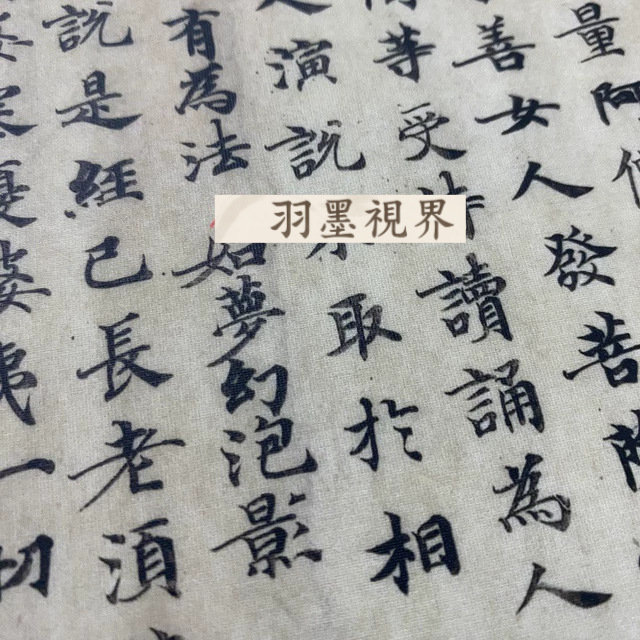 量阿
善女人發菩
等受讀誦為人
演說取於相
有為法如夢幻泡影
說是經已長老須
婆夷一切
羽墨視界